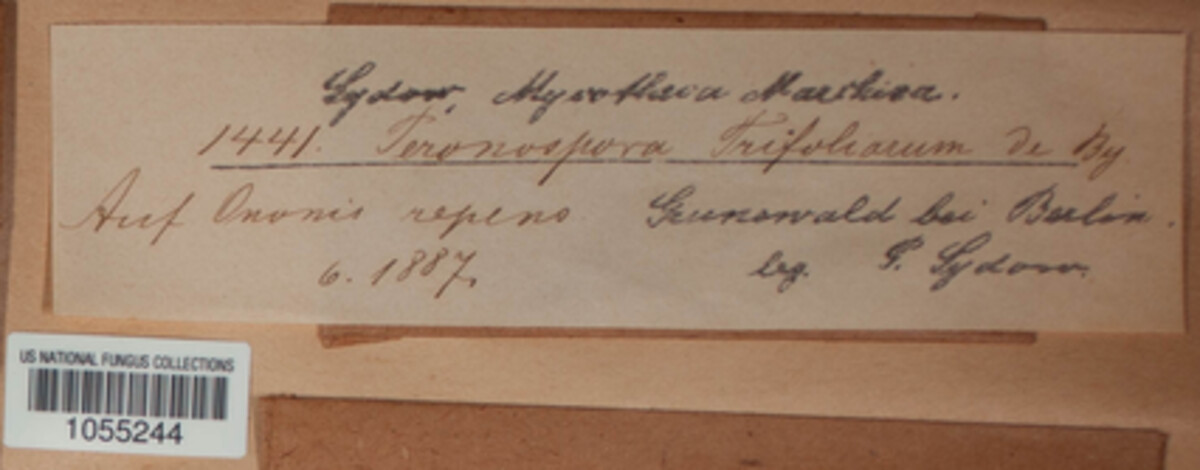 Sydow, Mycotheca Marchica.
1441. Peronospora Trifoliorum de By
Auf Ononis repens Grunewald bei Berlin.
6. 1887. leg. P. Sydow.
US NATIONAL FUNGUS COLLECTIONS
1055244